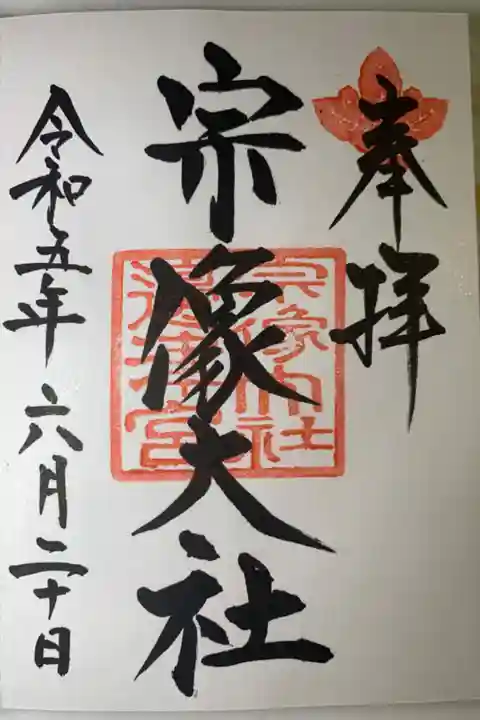 奉拝
宗像大社
令和五年 六月二十日
宗像大社
邊津宮